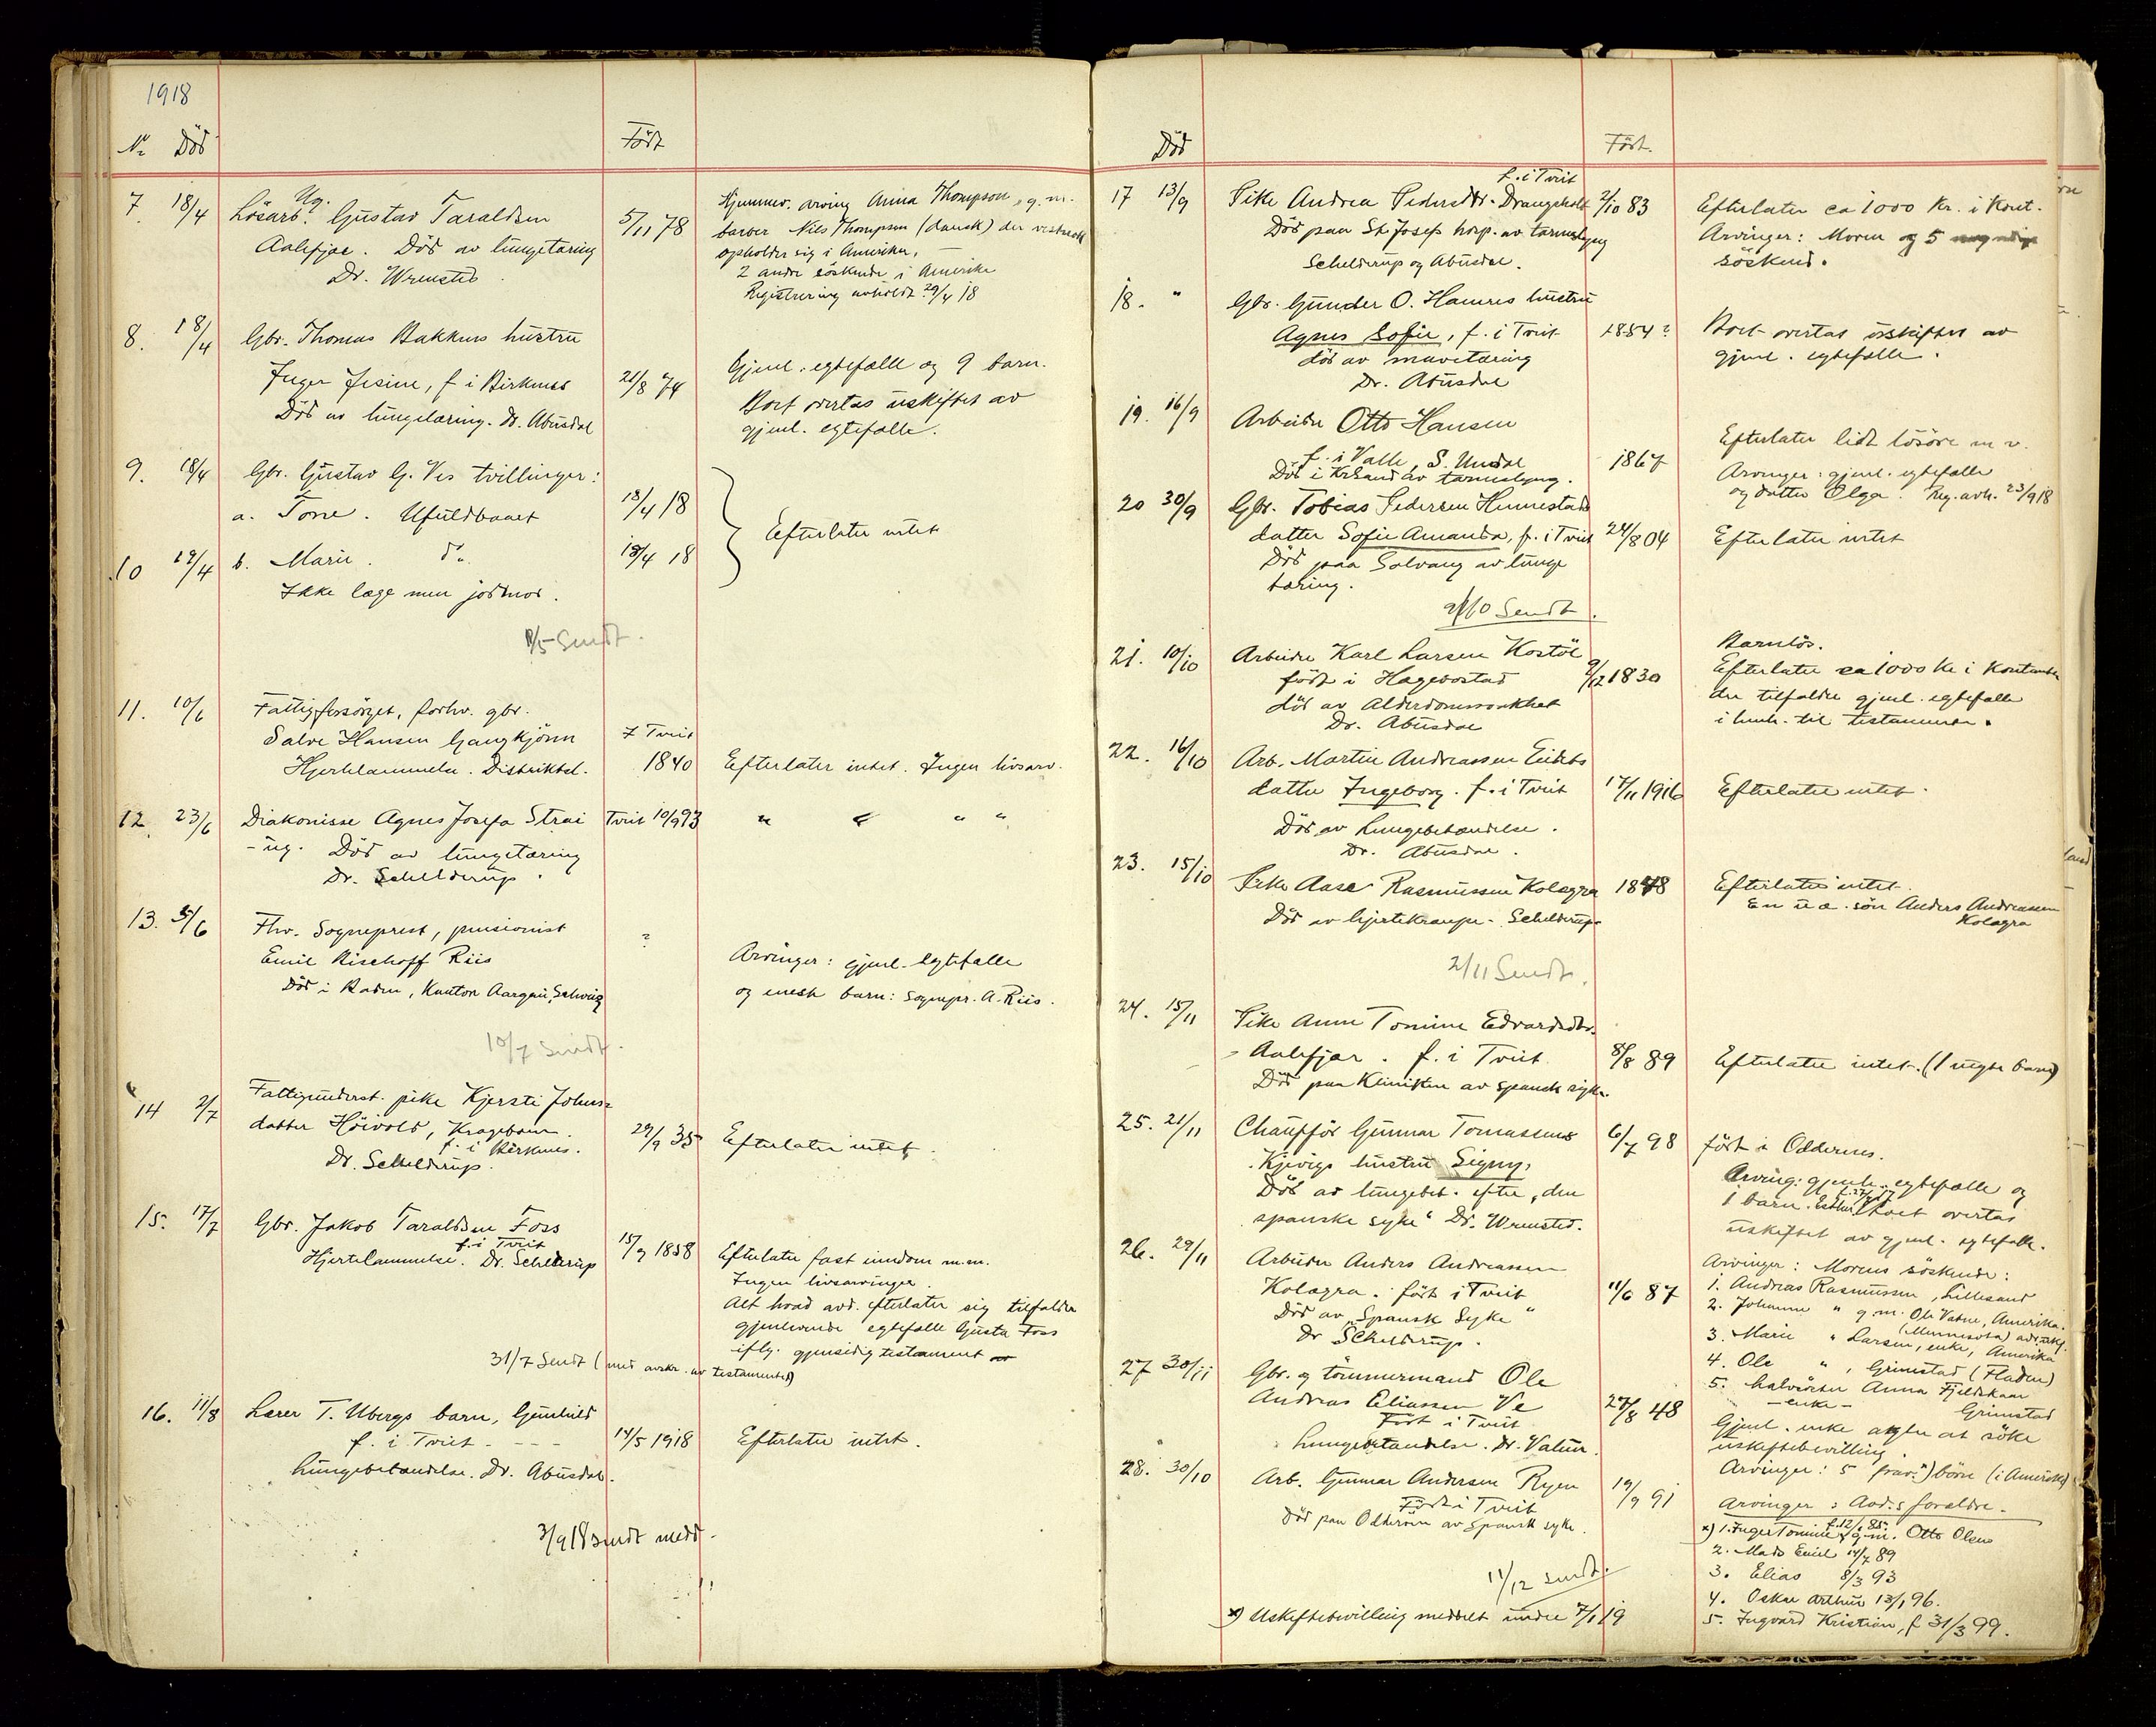 1918
No Död Födt
7. 18/4 Ug. Lösarb. Gustav Taraldsen 5/11 78 Hjemmev. arving Anna Thompson, g. m.
Aalefjær. Död av lungetæring barber Nils Thompson (dansk) der
Dr. Wrensted opholder sig i Amerika.
2 andre söskende i Amerika
Registrering avholdt 29/4 18
8. 18/4 Gbr. Thomas Bakkens hustru
Inger Jesine, f i Birkenes 21/8 74 Gjenl. egtefælle og 9 barn.
Död av lungetæring. Dr. Abusdal Boet overtas uskiftet av
gjenl. egtefælle.
9. 18/4 Gbr. Gustav G. Ves tvillinger:
a. Tone. Ufuldbaaret 18/4 18 Efterlater intet
10 19/4 b. Marie. do. 18/4 18
Ikke læge men jordmor.
/5 Sendt.
11. 10/6 Fattigforsörget, forhv. gbr.
Salve Hansen Gangkjönn f Tveit
Hjertelammelse. Distriktsl. 1840 Efterlater intet. Ingen livsarv.
12. 23/6 Diakonisse Agnes Josefa Strai Tveit 10/9 93 " " " "
- ug. Död av lungetæring
Dr. Schelderup.
13. 5/6 Fhv. Sogneprest, pensionist ?
Emil Bischoff Riis Arvinger: gjenl. egtefælle
Död i Baden, Kanton Aargau, Schweig og eneste barn: sognepr. A. Riis.
10/7 Sendt.
14 2/7 Fattigunderst. pike Kjersti Johns-
datter Höivold, Krageboen. 29/9 35 Efterlater intet.
f. i Birkenes.
Dr. Schelderup.
15. 17/7 Gbr. Jakob Taraldsen Foss
f. i Tveit 15/9 1858 Efterlater fast eiendom m.m.
Hjertelammelse. Dr. Schelderup Ingen livsarvinger.
Alt hvad avd. efterlater sig tilfalder
gjenlevende egtefælle Gusta Foss
iflg. gjensidig testament
31/7 Sendt (med avskr. av testamentet)
16. 11/8 Lærer T. Ubergs barn, Gunhild
f. i Tveit - - - 14/5 1918 Efterlater intet.
Lungebetændelse. Dr. Abusdal.
3/9 18 sendt medd.
Död Födt.
17 13/9 f. i Tveit
Pike Andrea Pedersdtr. Drangsholt 2/10 83 Efterlater ca 1000 Kr. i Kont.
Död paa St. Josefs hosp. av tarmslyng Arvinger: Moren og 5
Schelderup og Abusdal. söskend.
18. " Gbr. Gunder O. Hamres hustru
Agnes Sofie, f. i Tveit 1854? Boet overtas uskiftet av
död av mavetæring gjenl. egtefælle.
Dr. Abusdal
19. 16/9 Arbeider Otto Hansen
f. i Valle, S. Undal 1867 Efterlater lidt lösöre m v.
Död i KrSand av tarmslyng. Arvinger: gjenl. egtefælle
og datter Olga. Reg. avh. 23/9 18
20 30/9 Gbr. Tobias Pedersen Hennestads
datter Sofie Amanda, f. i Tveit 24/8 04 Efterlater intet
Död paa Solvang av lunge
tæring.
9/10 Sendt.
21. 10/10 Arbeider Karl Larsen Kostöl 9/12 1830 Barnlös.
födt i Hægebostad Efterlater ca 1000 Kr i Kontanter
död av Alderdomssvakhet der tilfalder gjenl. egtefælle
Dr. Abusdal i henh. til testament.
22. 16/10 Arb. Martin Andreassen
datter Ingeborg. f. i Tveit 17/11 1916 Efterlater intet.
Död av Lungebetændelse.
Dr. Abusdal.
23. 15/10 Pike Aase Rasmussen Kolagra 1848 Efterlater intet.
Död av hjertekrampe - Schelderup. En u. æ. sön Anders Andreassen
Kolagra
2/11 Sendt.
24. 15/11 Pike Anne Tomine Edvardsdtr.
Aalefjær. f. i Tveit 8/8 89 Efterlater intet. (1 uegte barn)
Död paa Klinikken av spansk syke.
25. 21/11 Chaufför Gunnar Tomassens 6/7 98 födt i Oddernes.
Kjevigs hustru Signy, Arving: gjenl. egtefælle og
Död av lungebet. efter "den 1 barn. Esther, boet overtas
spanske syke" Dr. Wrensted. uskiftet av gjenl. egtefælle.
26. 29/11 Arbeider Anders Andreassen Arvinger: Morens söskende:
Kolagra. födt i Tveit 11/6 87 1. Andreas Rasmussen, Lillesand
Död av "Spansk Syke" 2. Johanne " g.m. Ole Vatne, Amerika.
Dr Schelderup. (Minnesota)
3. Marie " Larsen, enke, Amerika
4. Ole " , Grimstad (Fladen)
5. halvsöster Anna Fjeldskaar
- enke - Grimstad
27 30/11 Gbr. og tömmermand Ole
Andreas Eliassen Ve 27/8 48 Gjenl. enke agter at söke
Födt i Tveit uskiftebevilling.
Lungebetændelse. Dr. Vatne. Arvinger: 5 frav. x) börn (i Amerika)
28. 30/10 Arb. Gunnar Andersen Ryen 19/9 91 Arvinger: Avd.s forældre.
Födt i Tveit
Död paa Odderöen av spansk syke.
x) 1. Inger Tomine f. 12/ 85 g.m. Otto Olsen
2. Mads Emil 14/7 89
3. Elias 8/3 93
4. Oskar Arthur 13/1 96.
5. Ingvard Kristian, f 31/3 99.
11/12 sendt.
x) Uskiftebevilling meddelt under 7/1 19